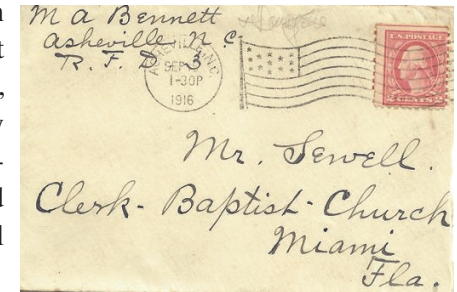 M A Bennett
Asheville N C.
R. F. D 3
ASHEVILLE, N.C.
SEP
1-30P
1916
U.S. POSTAGE
2 CENTS 2
Mr. Sewell.
Clerk- Baptist- Church
Miami
Fla.